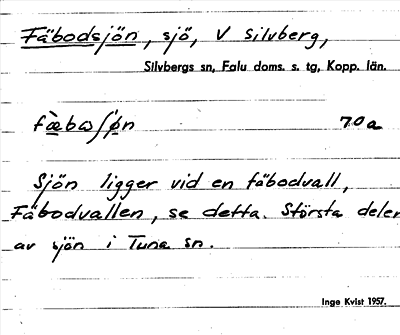 Fäbodsjön, sjö, V Silvberg,
Silvbergs sn, Falu doms. s. tg, Kopp. län.
fæ̀bωʃø̀n 70a
Sjön ligger vid en fäbodvall,
Fäbodvallen, se detta. Största delen
av sjön i Tuna sn.
Inge Kvist 1957.